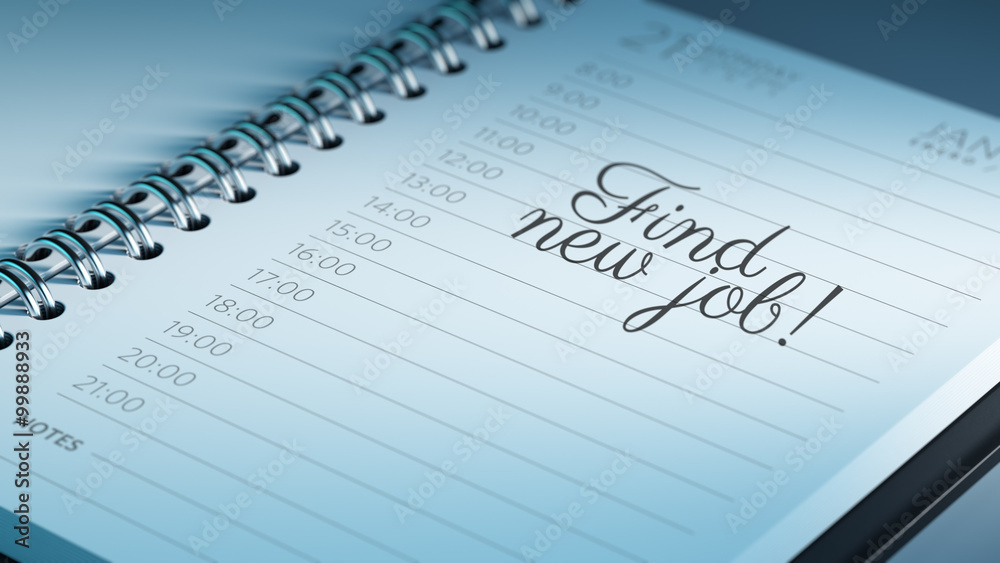 JAN
8:00
9:00
10:00
11:00
12:00
13:00
14:00
15:00
16:00
17:00
18:00
19:00
20:00
21:00
NOTES
Find
new job!
Adobe Stock | #99888933